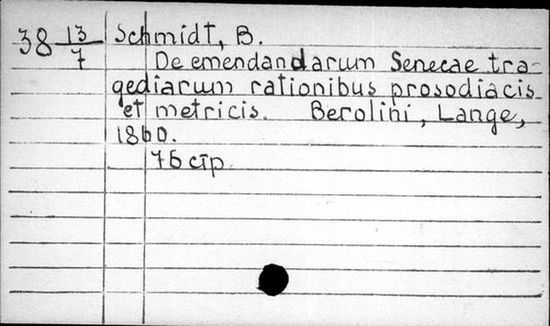 38 13/7 Schmidt, B.
De emendandarum Senecae tra-
gediarum rationibus prosodiacis
et metricis. Berolini, Lange,
1860.
76 стр.